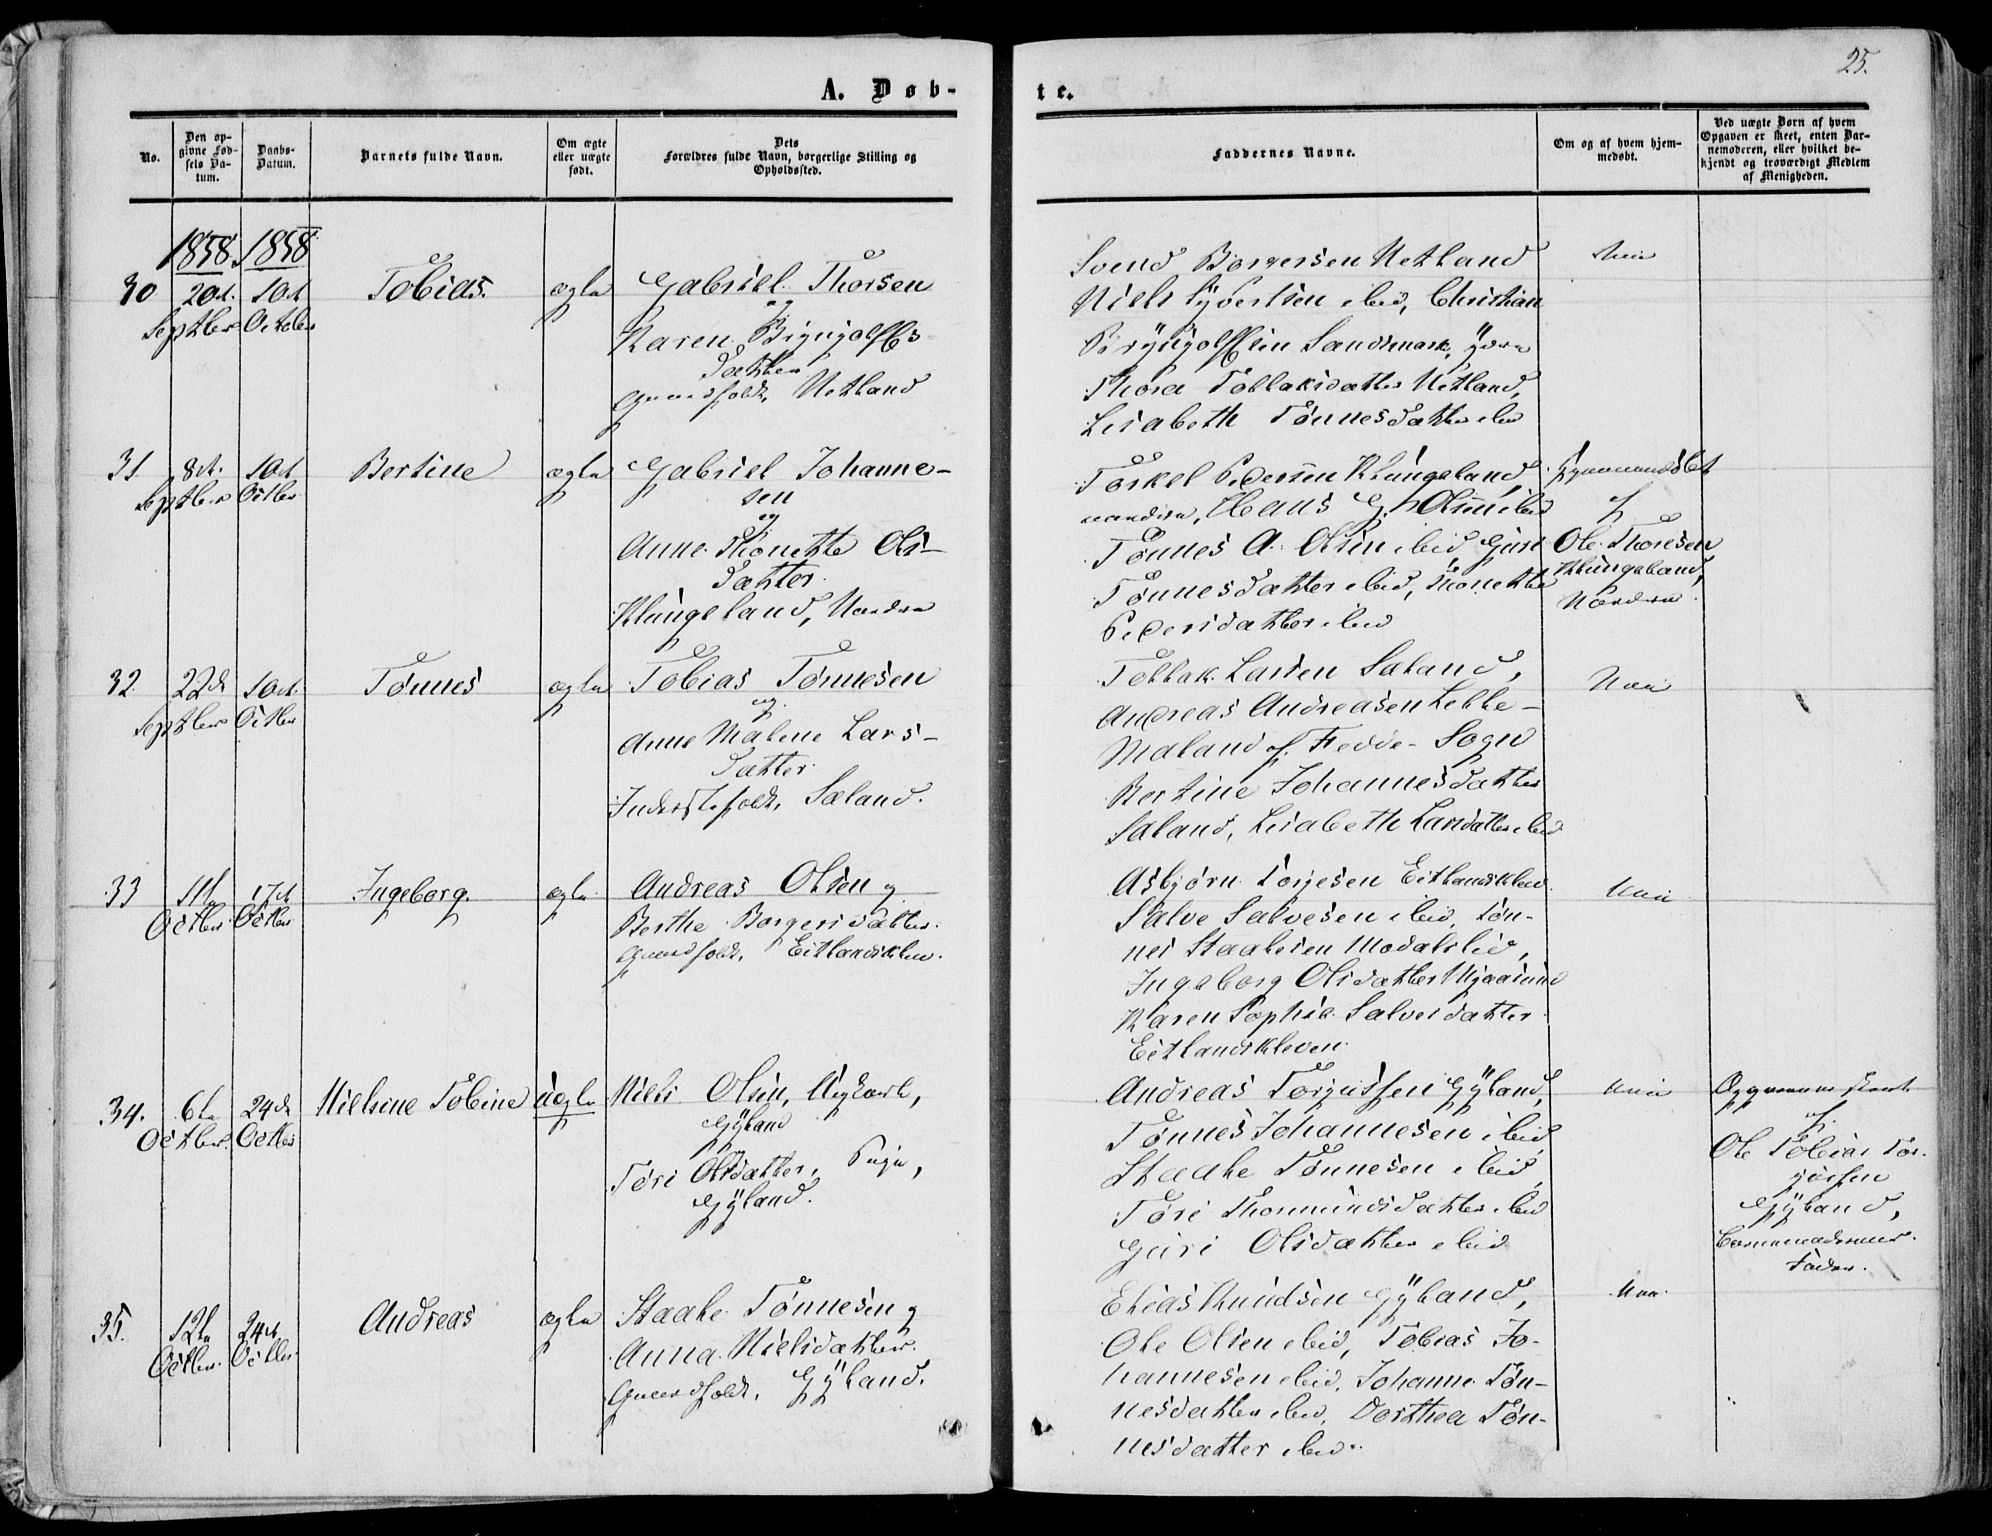 25.
A. Døb-
te.
No.
Den op-
givne Fød-
sels Da-
tum.
Daabs-
Datum.
Barnets fulde Navn.
Om ægte
eller uægte
født.
Dets
Forældres fulde Navn, borgerlige Stilling og
Opholdssted.
Faddernes Navne.
Om og af hvem hjem-
medøbt.
Ved uægte Børn af hvem
Opgaven er skeet, enten Bar-
nemoderen, eller hvilket be-
kjendt og troværdigt Medlem
af Menigheden.
1858. 1858
30 20de 10de Tobias. ægte Gabriel Thorsen
Septber October og
Karen
Datter
Gaardfolk, Netland
Svend Børgersen Netland
Niels Syvertsen ibid, Christian
Sandsmark,
Thora Tollaksdatter Netland,
Lisabeth Tønnesdatter ibid
Nei
31. 8de 10de Bertine ægte Gabriel Johanne-
Septber Octber sen
og
Anne Thonette Ols-
datter
Klungeland,
Torkel Pedersen Klungeland,
Hans Olsen ibid
Tønnes A. Olsen ibid,
Tønnesdatter ibid, Thonette
Pedersdatter ibid
Hjemmedøbt
af
Ole Thoresen
Klungeland,
32. 22de 10de Tønnes ægte Tobias Tønnesen
Septber Octber og
Anne Malene Lars-
datter
Inderstfolk, Sæland.
Tollak Larsen Sæland,
Andreas Andreasen Lille-
Maland af Fedde-Sogn
Bertine Johannesdatter
Sæland, Lisabeth Larsdatter ibid
Nei
33 11te 17de Ingeborg. ægte Andreas Olsen og
Octber Octber Berthe Børgersdatter.
Gaardfolk, Eitlandsklev.
Asbjørn Torjesen Eitlandskleven
Salve Salvesen ibid, Tøn-
nes Staalesen Modalsli,
Ingeborg Olsdatter
Karen Sophie Salvesdatter
Eitlandskleven.
Nei
34. 6te 24de Nielsine Tobine uægte Niels Olsen, Ungkarl,
Octber. Octber Gyland
og
Tøri Olsdatter, Pige,
Gyland.
Andreas Torjussen Gyland,
Tønnes Johannesen ibid,
Staale Tønnesen ibid,
Tøri Thormundsdatter ibid
Guri Olsdatter ibid
Nei
Opgaven skeet
af
Ole Tobias Tor-
jussen
Gyland,
Barnemoderens
Fader.
35. 12te 24de Andreas ægte Staale Tønnesen og
Octber. Octber Anna Nielsdatter.
Gaardfolk, Gyland.
Elias Knudsen Gyland,
Ole Olsen ibid, Tobias Jo-
hannesen ibid, Johanne Tøn-
nesdatter ibid, Dorthea Tøn-
nesdatter ibid.
Nei.